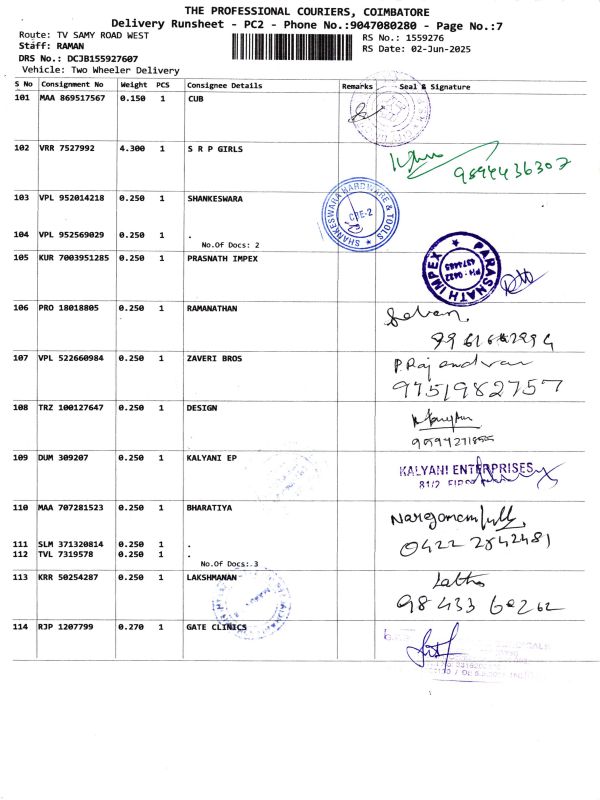 THE PROFESSIONAL COURIERS, COIMBATORE
Delivery Runsheet - PC2 - Phone No.:9047080280 - Page No.:7
Route: TV SAMY ROAD WEST
RS No.: 1559276
Staff: RAMAN
RS Date: 02-Jun-2025
DRS No.: DCJB155927607
Vehicle: Two Wheeler Delivery
S No Consignment No Weight PCS Consignee Details Remarks Seal & Signature
101 MAA 869517567 0.150 1 CUB
102 VRR 7527992 4.300 1 S R P GIRLS
9894436302
103 VPL 952014218 0.250 1 SHANKESWARA
SHANKESWARA HARDWARE & TOOLS
CBE-2
104 VPL 952569029 0.250 1 .
No.Of Docs: 2
105 KUR 7003951285 0.250 1 PRASNATH IMPEX
PARASNATH IMPEX
PH - 0422
4374465
106 PRO 18018805 0.250 1 RAMANATHAN
107 VPL 522660984 0.250 1 ZAVERI BROS
P. Rajendran
9751982757
108 TRZ 100127647 0.250 1 DESIGN
109 DUM 309207 0.250 1 KALYANI EP
KALYANI ENTERPRISES
110 MAA 707281523 0.250 1 BHARATIYA
111 SLM 371320814 0.250 1 .
0422 2542481
112 TVL 7319578 0.250 1 .
No.Of Docs: 3
113 KRR 50254287 0.250 1 LAKSHMANAN
Latha
98433 60262
114 RJP 1207799 0.270 1 GATE CLINICS